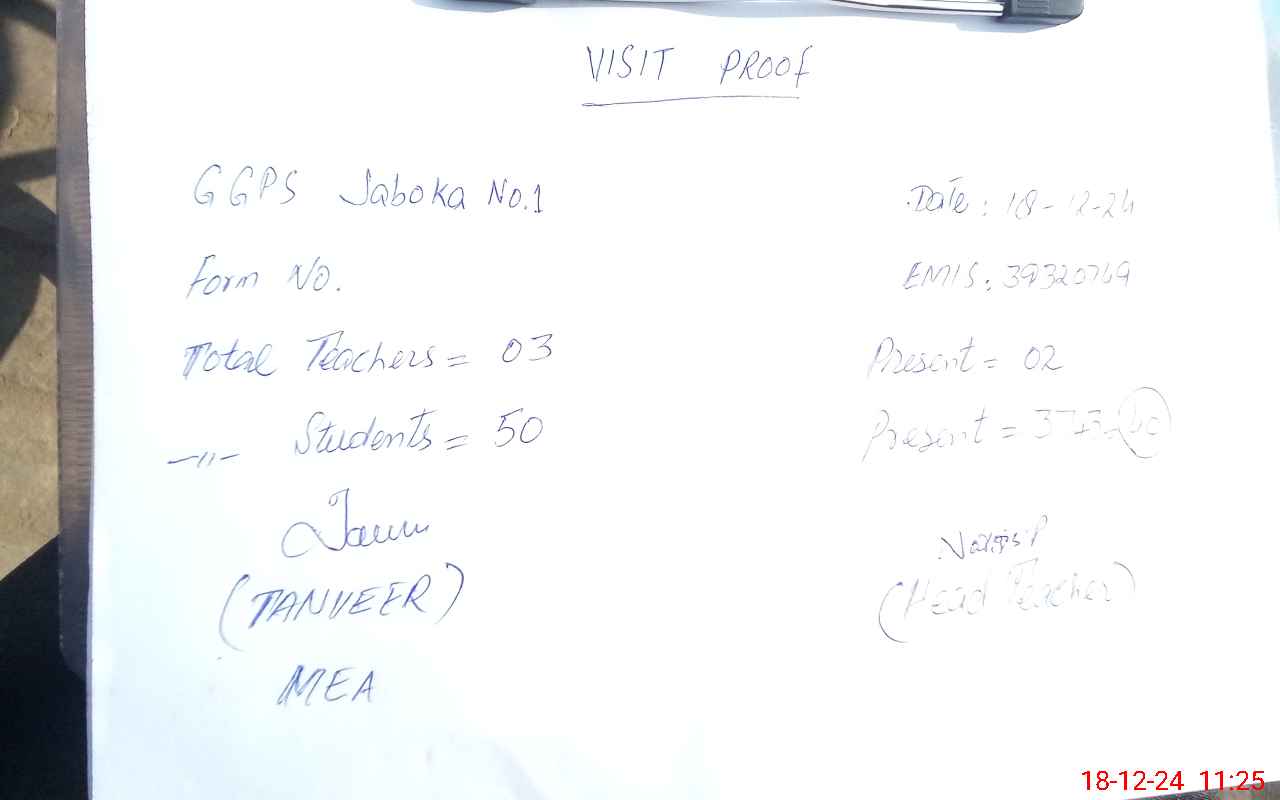 VISIT PROOF
GGPS Jaboka No.1
Date: 18-12-24
Form No.
EMIS: 39320769
Total Teachers = 03
Present = 02
-"- Students = 50
Present =
(TANVEER)
(Head Teacher)
MEA
18-12-24 11:25